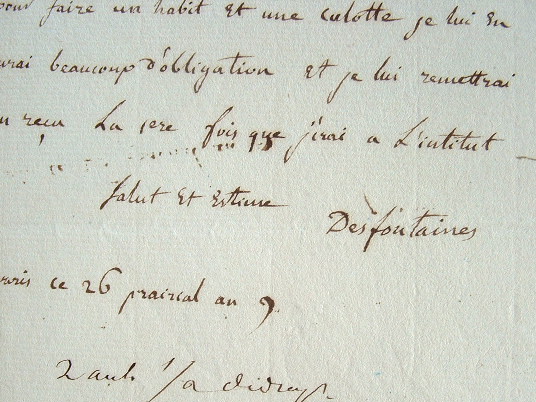 pour faire un habit et une culotte je lui en
aurai beaucoup d'obligation et je lui remettrai
un reçu La 1ere fois que j'irai a L'institut
Salut et Estime
Desfontaines
paris ce 26 prairial an 9